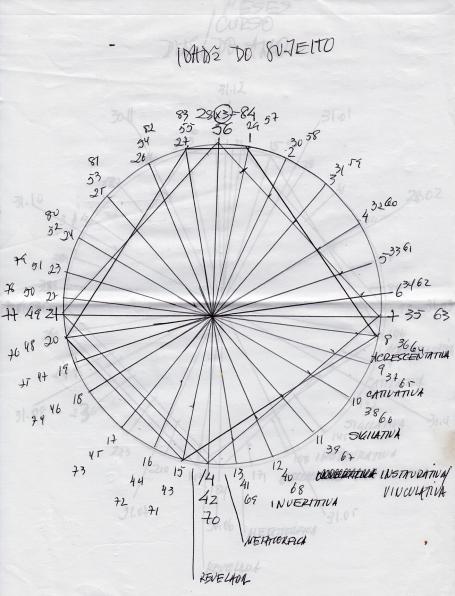 IDADE DO SUJEITO
28x3=84
83 55 27
56
1 29 57
82 54 26
2 30 58
81 53 25
3 31 59
80 52 24
4 32 60
79 51 23
5 33 61
78 50 22
6 34 62
77 49 21
7 35 63
76 48 20
8 36 64
ACRESCENTATIVA
75 47 19
9 37 65
CATIVATIVA
74 46 18
10 38 66
SIGILATIVA
73 45 17
11 39 67
INSTAURATIVA/
VINCULATIVA
72 44 16
12 40 68
INVERTITIVA
71 43 15
14 42 70
13 41 69
METAFÓRICA
REVELADA